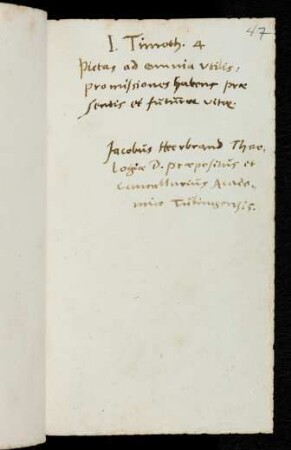 47
I. Timoth. 4
Pietas ad omnia utilis,
promissiones habens præ
sentis et futuræ vitæ.
Jacobus Heerbrand Theo,
logiæ D. præpositus et
Cancellarius Acade,
miæ Tubingensis.